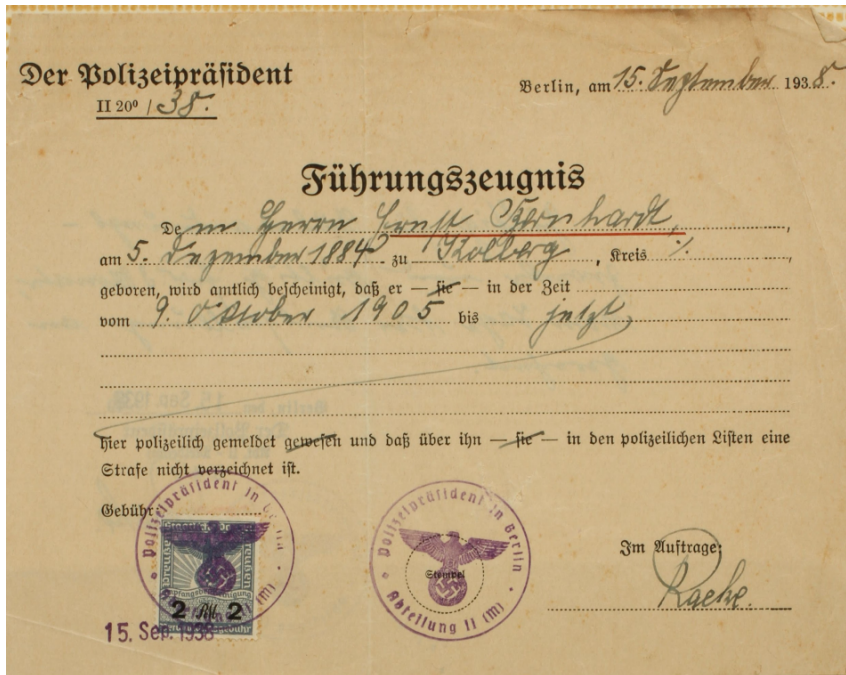 Der Polizeipräsident
II 20⁰ / 38.
Berlin, am 15. September 1938.
Führungszeugnis
Dem Herrn Ernst Bernhardt,
am 5. Dezember 1884 zu Kolberg, Kreis ·/.
geboren, wird amtlich bescheinigt, daß er — sie — in der Zeit
vom 9. Oktober 1905 bis jetzt,
hier polizeilich gemeldet gewesen und daß über ihn — sie — in den polizeilichen Listen eine
Strafe nicht verzeichnet ist.
Gebühr:
Polizeipräsident in Berlin
2 RM 2
15. Sep. 1938
Polizeipräsident in Berlin
Stempel
Abteilung II (M)
Im Auftrage: